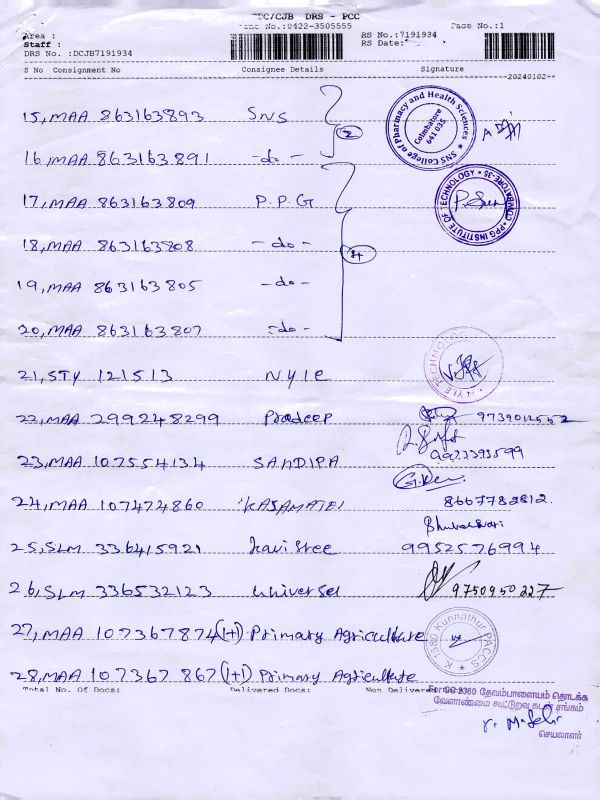 TPC/CJB DRS - PCC
Phone No.:0422-3505555 Page No.:1
Area :
Staff :
DRS No. :DCJB7191934
RS No.:7191934
RS Date:
S No Consignment No Consignee Details Signature
20240102
15, MAA 863163893 SNS
SNS College of Pharmacy and Health Sciences
Coimbatore 641 035
16, MAA 863163891 -do-
2
17, MAA 863163809 P.P.G
PPG INSTITUTE OF TECHNOLOGY COIMBATORE-35
18, MAA 863163808 -do-
19, MAA 863163805 -do-
20, MAA 863163807 -do-
21, STY 121513 NYLE
NYLE TECHNOLOGY
22, MAA 299248299 Pradeep
23, MAA 107554134 SANDIPA
24, MAA 107474860 8667782812.
25, SLM 336415921 Kavi Sree 9952576994
26, SLM 336532123 Universel 9750950227
27, MAA 107367874 (1+) Primary Agriculture
K 2380 Kunnathur PACCS
28, MAA 107367867 (1+) Primary Agriculture
Total No. Of Docs: Delivered Docs: Non Delivered Docs:
தேவம்பாளையம் தொடக்க
வேளாண்மை கூட்டுறவு கடன் சங்கம்
செயலாளர்